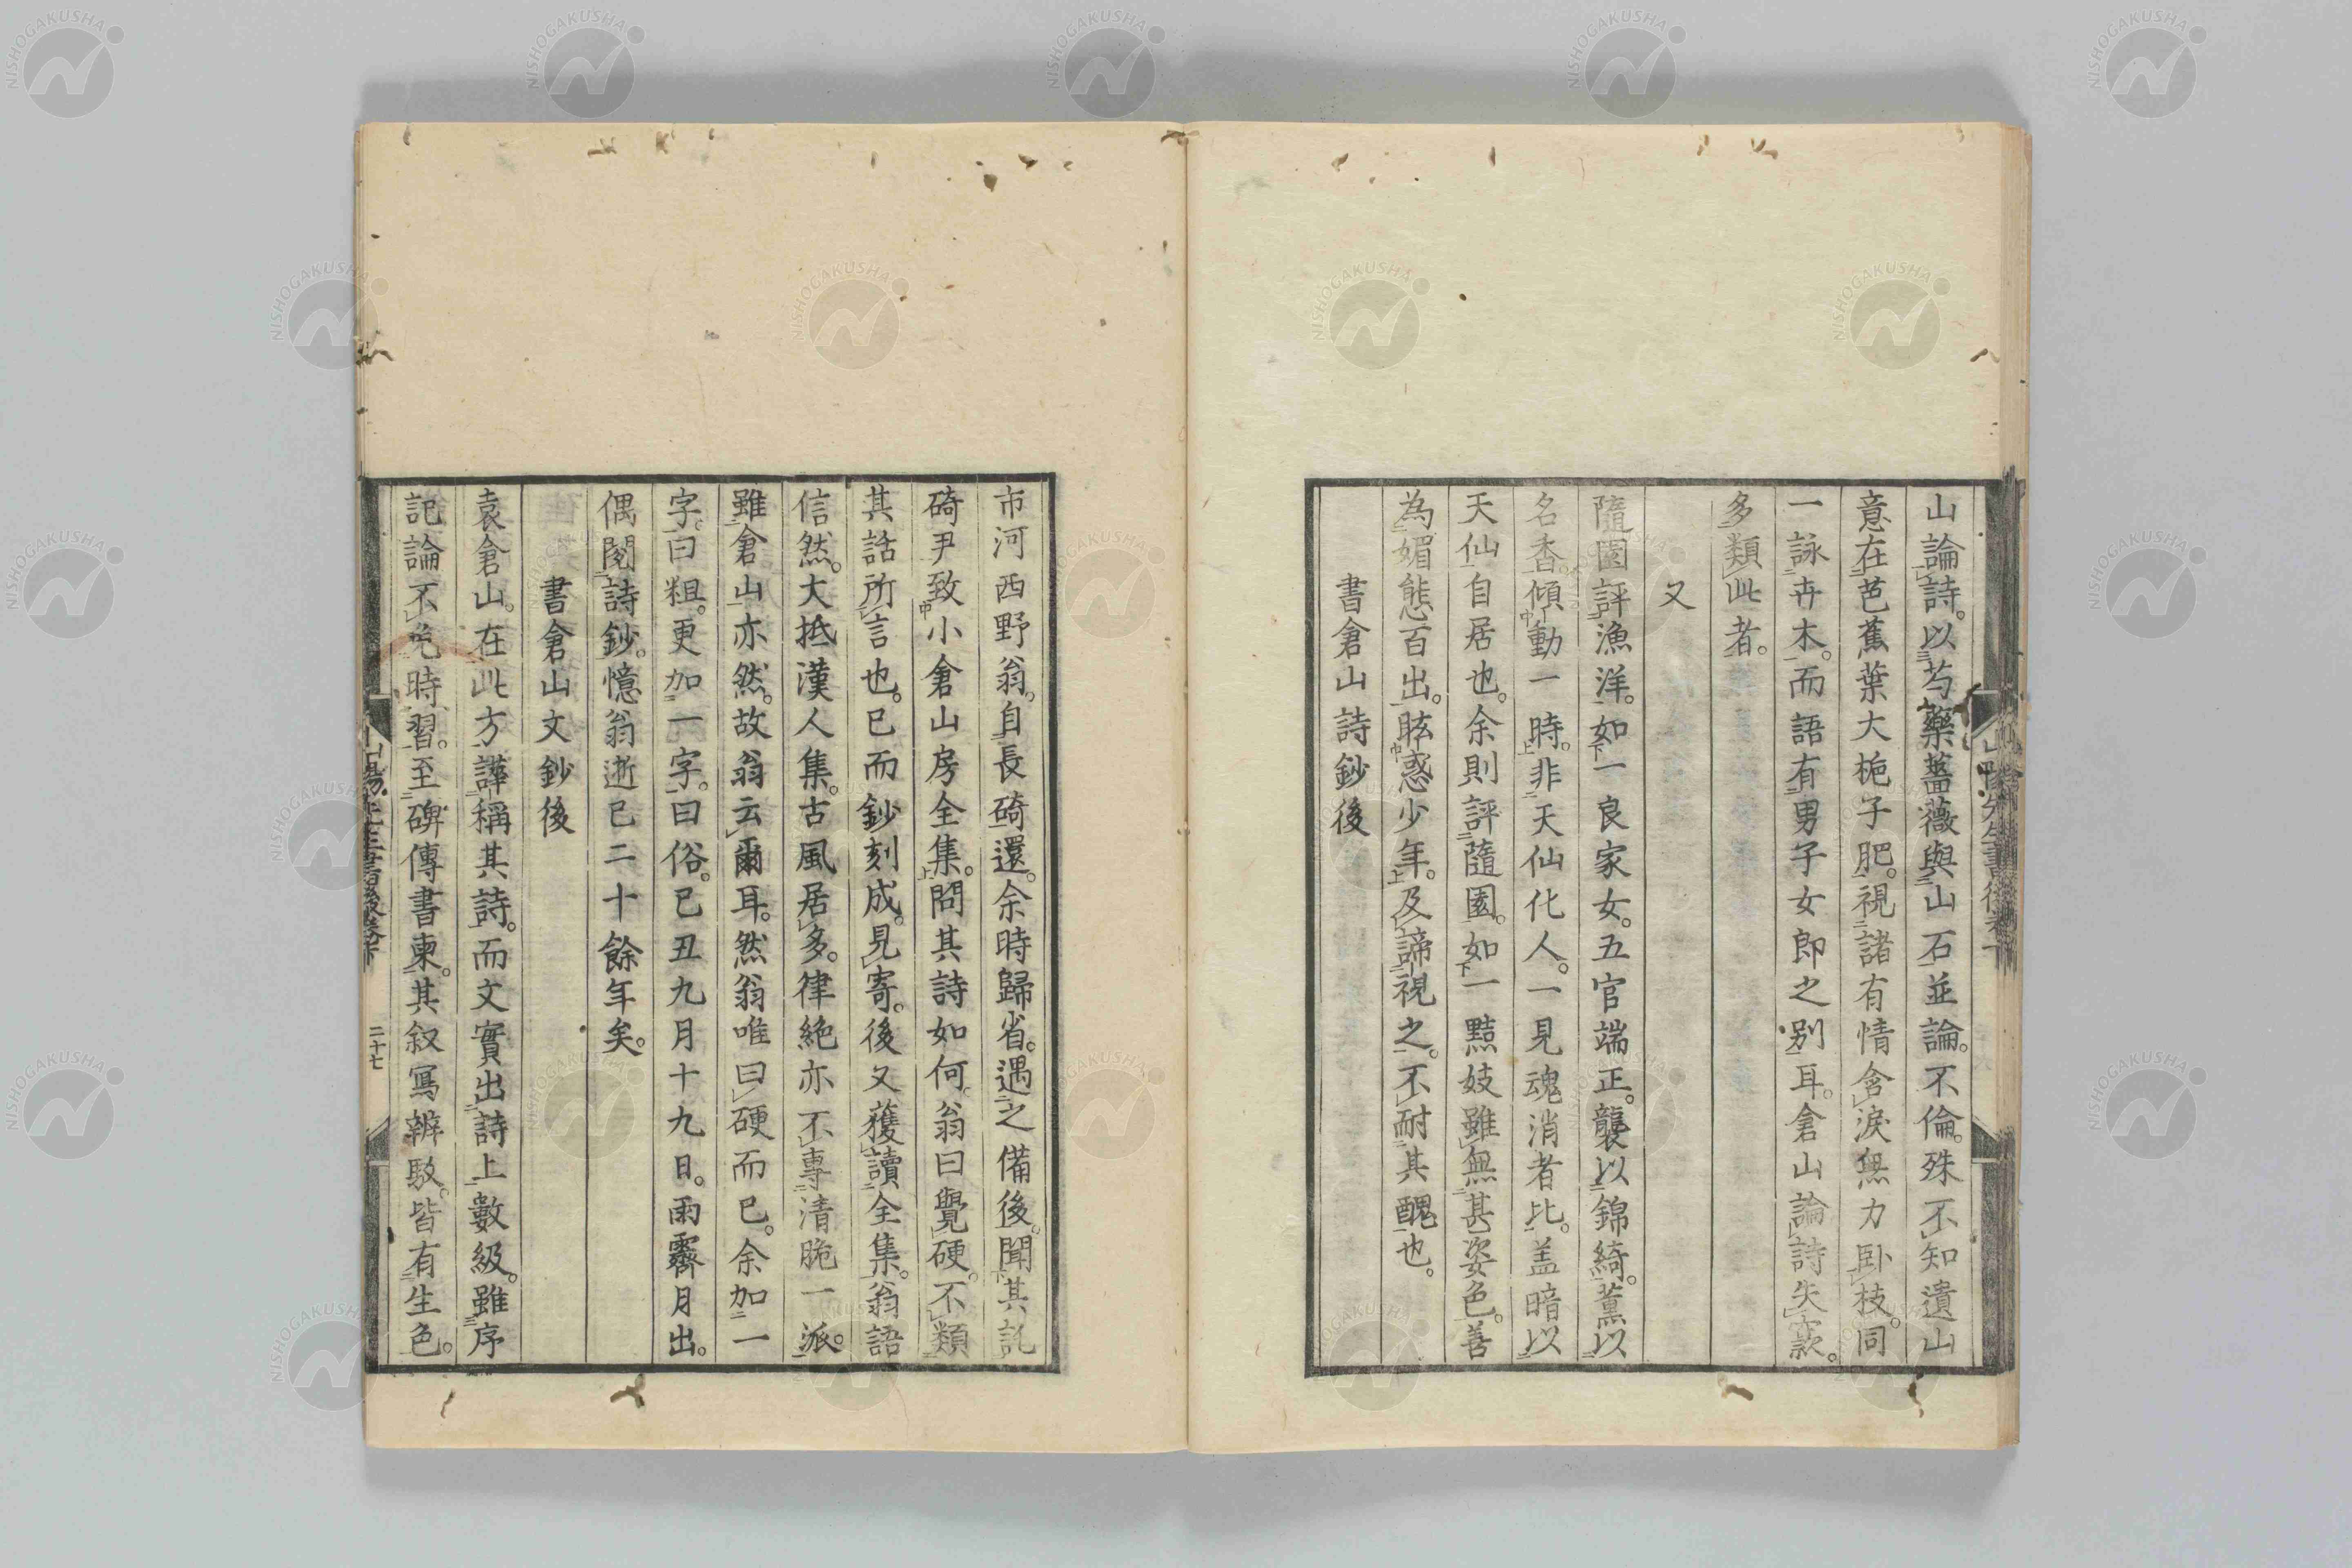 山論詩。以芍藥薔薇與山石並論。不倫。殊不知遺山
意在芭蕉葉大梔子肥。視諸有情含淚無力臥枝。同
一詠卉木。而語有男子女郎之別耳。倉山論詩失窾。
多類此者。
又
隨園評漁洋。如一良家女。五官端正。襲以錦綺。薰以
名香。傾動一時。非天仙化人。一見魂消者比。盖暗以
天仙自居也。余則評隨園。如一黠妓雖無其姿色。善
為媚態百出。眩惑少年。及諦視之。不耐其醜也。
書倉山詩鈔後
市河西野翁。自長碕還。余時歸省。遇之備後。聞其託
碕尹致小倉山房全集。問其詩如何。翁曰覺硬。不類
其話所言也。已而鈔刻成。見寄。後又獲讀全集。翁語
信然。大抵漢人集。古風居多。律絶亦不專清脆一派。
雖倉山亦然。故翁云爾耳。然翁唯曰硬而已。余加一
字。曰粗。更加一字。曰俗。己丑九月十九日。雨霽月出。
偶閱詩鈔。憶翁逝已二十餘年矣。
書倉山文鈔後
袁倉山。在此方譁稱其詩。而文實出詩上數級。雖序
記論不免時習。至碑傳書柬。其叙寫辨駁。皆有生色。
山陽先生書後卷下
二十七
NISHOGAKUSHA